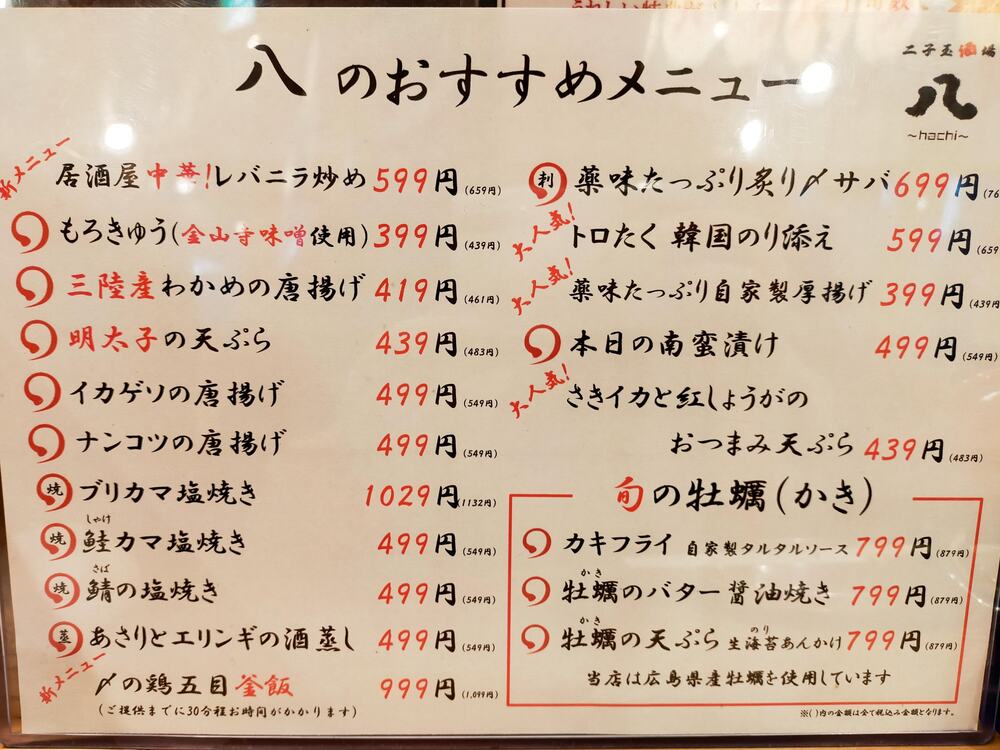 八のおすすめメニュー
二子玉酒場
八
~hachi~
新メニュー
居酒屋中華!レバニラ炒め 599円(659円)
もろきゅう(金山寺味噌使用) 399円(439円)
三陸産わかめの唐揚げ 419円(461円)
明太子の天ぷら 439円(483円)
イカゲソの唐揚げ 499円(549円)
ナンコツの唐揚げ 499円(549円)
焼 ブリカマ塩焼き 1029円(1132円)
しゃけ
焼 鮭カマ塩焼き 499円(549円)
さば
焼 鯖の塩焼き 499円(549円)
蒸 あさりとエリンギの酒蒸し 499円(549円)
新メニュー
〆の鶏五目釜飯 999円(1,099円)
(ご提供までに30分程お時間がかかります)
刺 薬味たっぷり炙り〆サバ 699円(76
大人気!
トロたく 韓国のり添え 599円(659
大人気!
薬味たっぷり自家製厚揚げ 399円(439円
本日の南蛮漬け 499円(549円)
大人気!
さきイカと紅しょうがの
おつまみ天ぷら 439円(483円)
旬の牡蠣(かき)
カキフライ 自家製タルタルソース 799円(879円)
かき
牡蠣のバター醤油焼き 799円(879円)
かき のり
牡蠣の天ぷら 生海苔あんかけ 799円(879円)
当店は広島県産牡蠣を使用しています
※()内の金額は全て税込み金額となります。